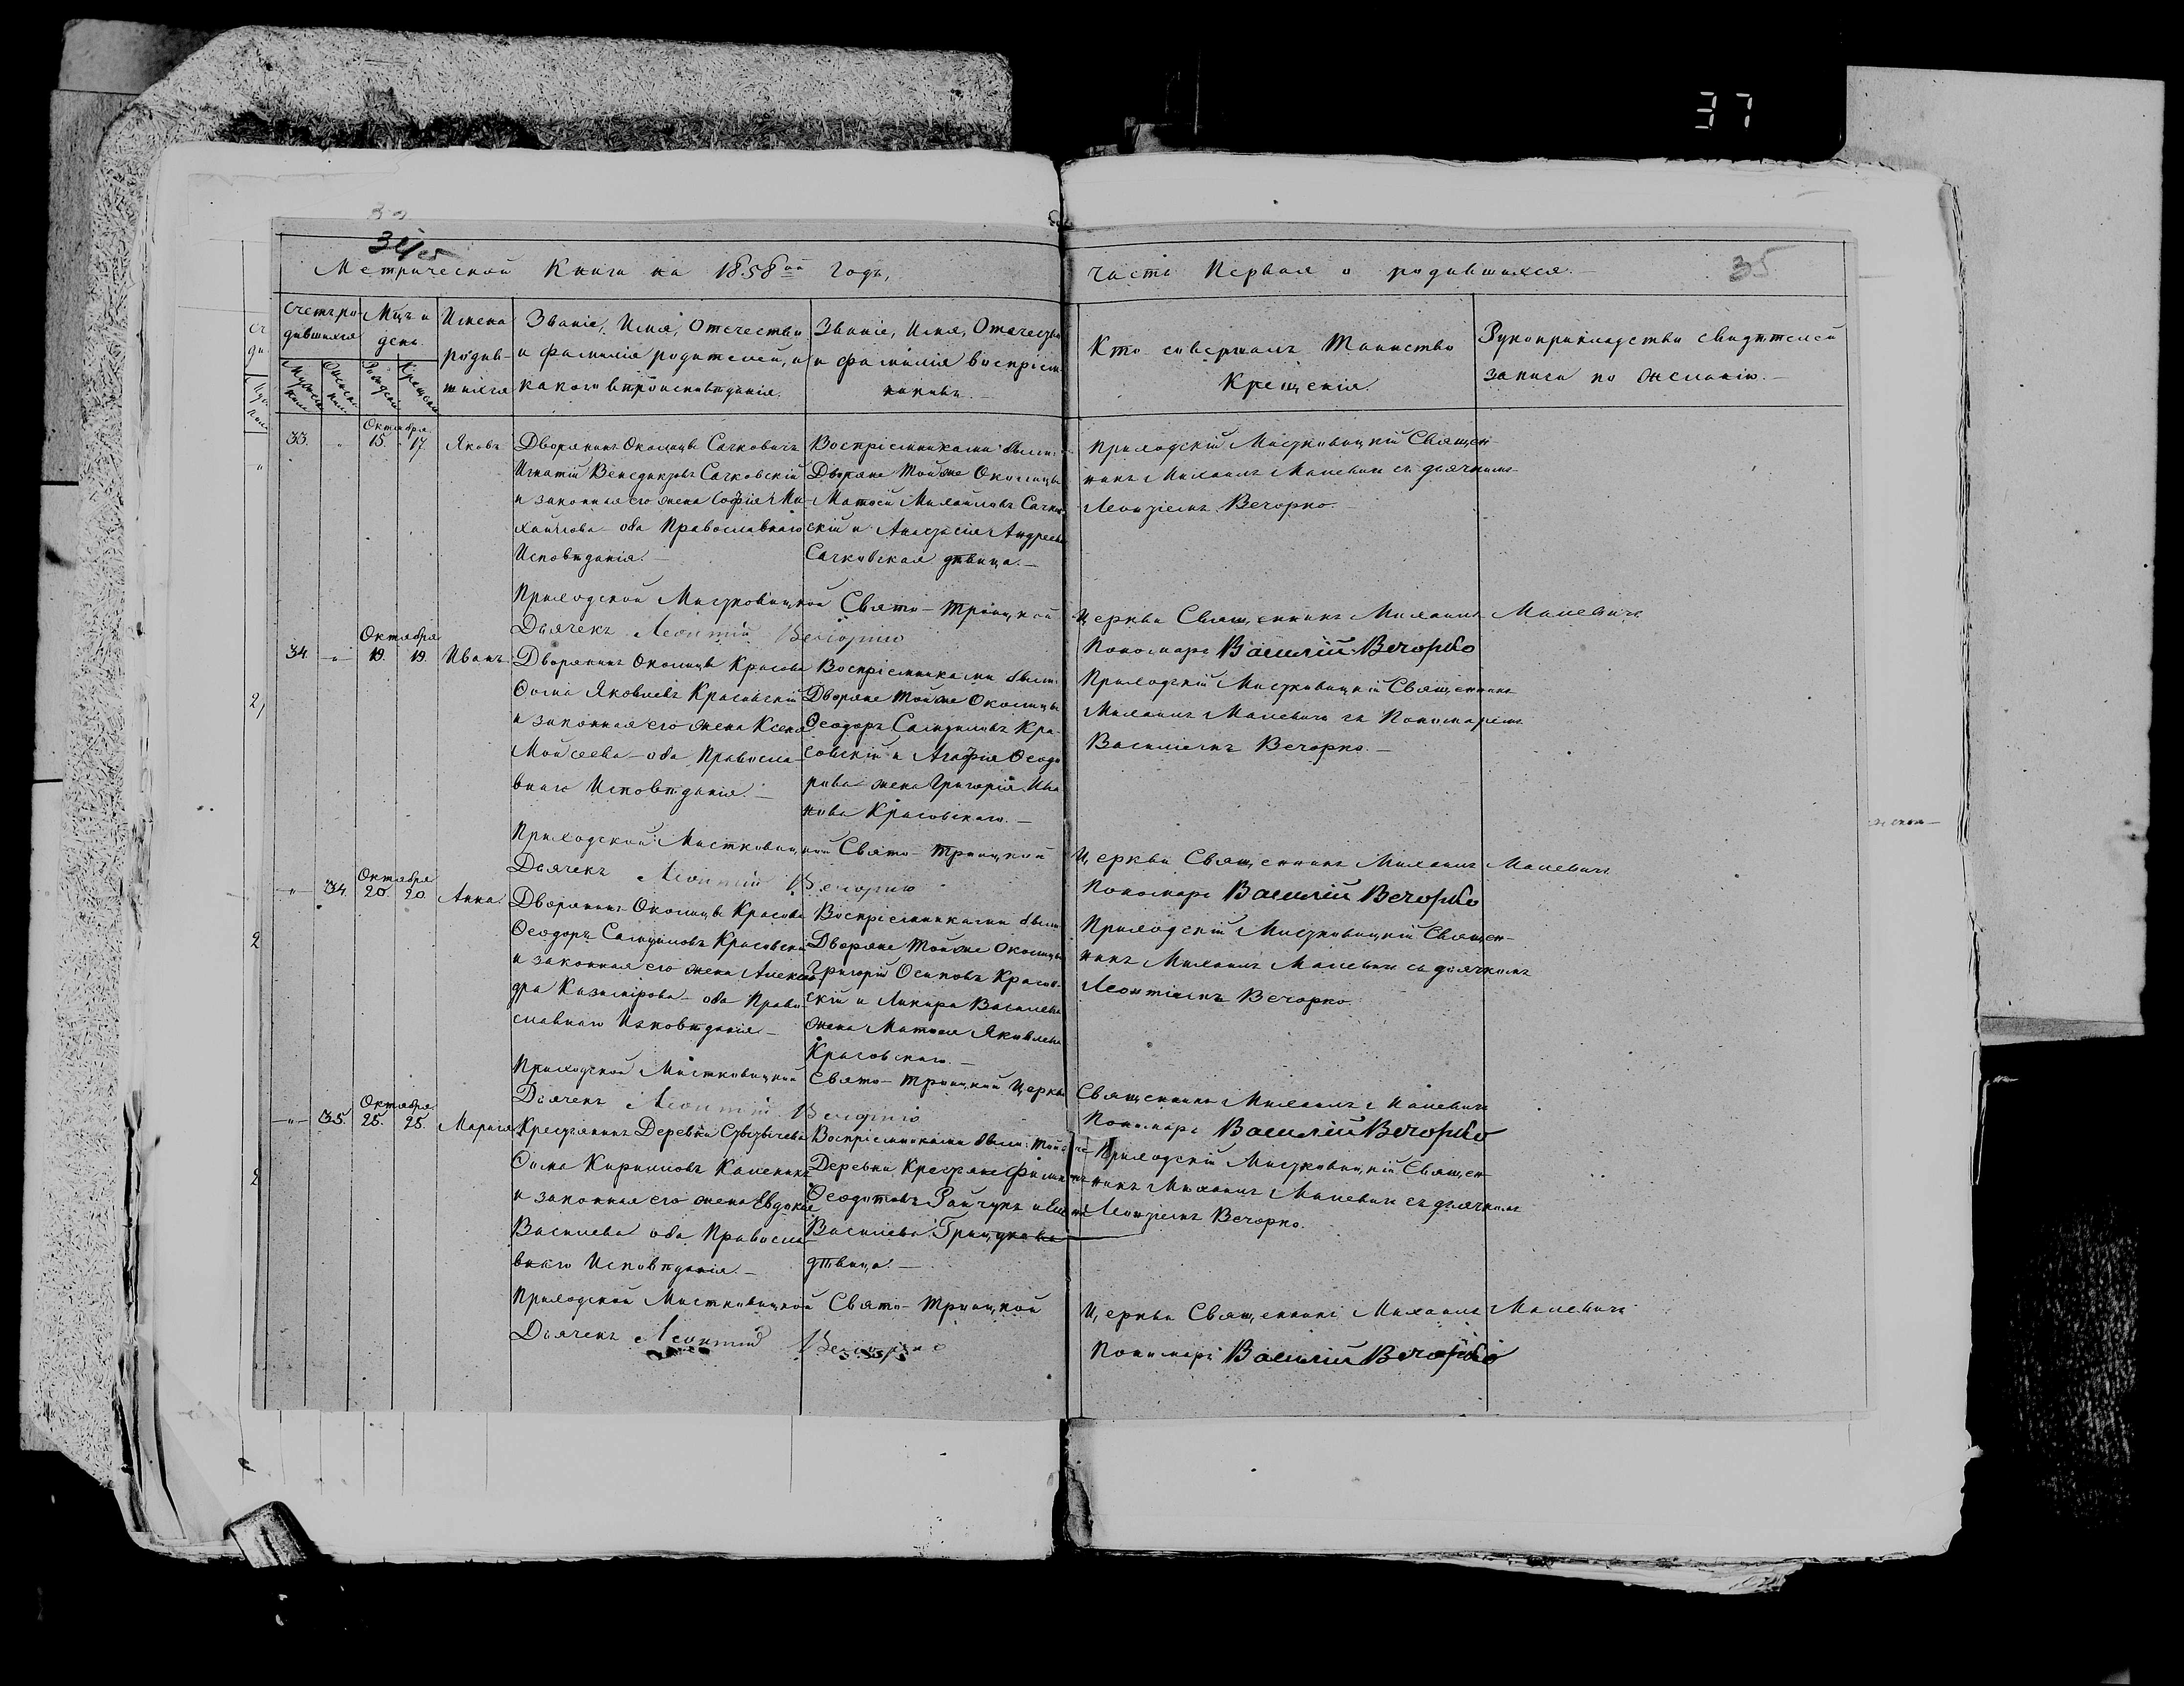 37
34/35
35
Метрической Книги на 1858ой Годъ,
часть Первая о родившихся.
Счетъ ро-
дившихся
Мужеска
Женска
Мцъ и
день.
Рожденія
Крещенія
Имена
родив-
шихся
Званіе, Имя, Отечество
и фамилія родителей, и
какого вѣроисповѣданія.
Званіе, Имя, Отечество
и фамилія воспріем
никовъ.
Кто совершалъ Таинство
Крещенія.
Рукоприкладство свидѣтелей
записи по желанію.
Октября
33. " 15. 17. Яковъ
Дворянинъ Околицы Сачковичъ
Игнатій Венедиктовъ Сачковскій
и законная его жена Софія Ми-
хайлова оба Православнаго
Исповѣданія.
Воспріемниками были:
Дворяне той же Околицы
Матөей Михайловъ Сачков
скій и Анастасія Андреева
Сачковская дѣвица.
Приходскій Мистковицкій Священ-
никъ Михаилъ Маневичъ съ дьячкомъ
Леонтіемъ Вечорко.
Приходской Мистковицкой Свято-Троицкой Церкви Священникъ Михаилъ Маневичъ
Дьячекъ Леонтій Вечорко
Пономарь Василій Вечорко
Октября
34. " 19. 19. Иванъ
Дворянинъ Околицы Красова
Өома Яковлевъ Красовскій
и законная его жена Ксенія
Моисеева оба Правосла-
внаго Исповѣданія.
Воспріемниками были:
Дворяне той же Околицы
Өеодоръ Самуиловъ Кра-
совскій и Агафія Өеодо
рова жена Григорія Ива
нова Красовскаго.
Приходскій Мистковицкій Священникъ
Михаилъ Маневичъ съ Пономаремъ
Василіемъ Вечорко.
Приходской Мистковицкой Свято-Троицкой Церкви Священникъ Михаилъ Маневичъ
Дьячекъ Леонтій Вечорко
Пономарь Василій Вечорко
Октября
" 34. 20. 20. Анна
Дворянинъ Околицы Красова
Өеодоръ Самуиловъ Красовскій
и законная его жена Алексан
дра Казимірова оба Право-
славнаго Исповѣданія
Воспріемниками были
Дворяне той же Околицы
Григорій Осиповъ Красов-
скій и Василіева
жена Матөея Яковлева
Красовскаго.
Приходскій Мистковицкій Священ-
никъ Михаилъ Маневичъ съ дьячкомъ
Леонтіемъ Вечорко.
Приходской Мистковицкой Свято-Троицкой Церкви Священникъ Михаилъ Маневичъ
Дьячекъ Леонтій Вечорко
Пономарь Василій Вечорко
Октября
" 35. 25. 25. Марія
Крестьянинъ Деревни
Өома Кирилловъ Каленикъ
и законная его жена Евдокія
Василева оба Правосла-
внаго Исповѣданія.
Воспріемниками были: той же
Деревни Крестьяне
Өеодотовъ Райчукъ и
Василіева
дѣвица.
Приходскій Мистковицкій Священ-
никъ Михаилъ Маневичъ съ дьячкомъ
Леонтіемъ Вечорко.
Приходской Мистковицкой Свято-Троицкой Церкви Священникъ Михаилъ Маневичъ
Дьячекъ Леонтій Вечорко
Пономарь Василій Вечорко